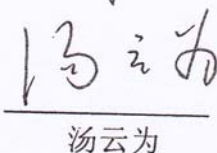 汤云为
汤云为